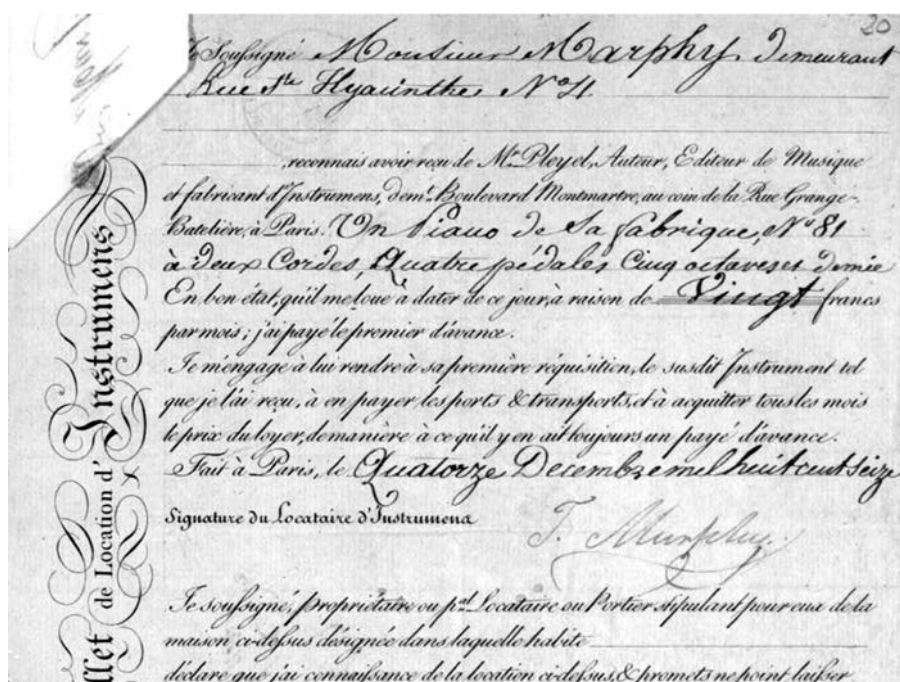 20
Je Soussigné Monsieur Marphy. Demeurant
Rue Ste Hyacinthe No 4
,reconnais avoir reçu de Mr. Pleyel, Auteur, Editeur de Musique
et fabricant d'Instrumens, demt. Boulevard Montmartre, au coin de la Rue Grange-
Batelière, à Paris. Un Piano de Sa fabrique, No 81
à deux Cordes, Quatre pédales Cinq octaves et demie
En bon état, qu'il me loue à dater de ce jour, à raison de Vingt francs
par mois; j'ai payé le premier d'avance.
Je m'engage à lui rendre à sa première réquisition, le susdit Instrument tel
que je l'ai reçu, à en payer les ports & transports, et à acquitter tous les mois
le prix du loyer, de manière à ce qu'il y en ait toujours un payé d'avance.
Fait à Paris, le Quatorze Decembre mel huit cent Seize
Signature du Locataire d'Instrumens
T. Murphy.
Je soussigné, propriétaire ou pal. Locataire ou Portier stipulant pour eux de la
maison ci-dessus désignée dans laquelle habite
déclare que j'ai connaissance de la location ci-dessus, & promets ne point laisser
llet de Location d'Instrumens